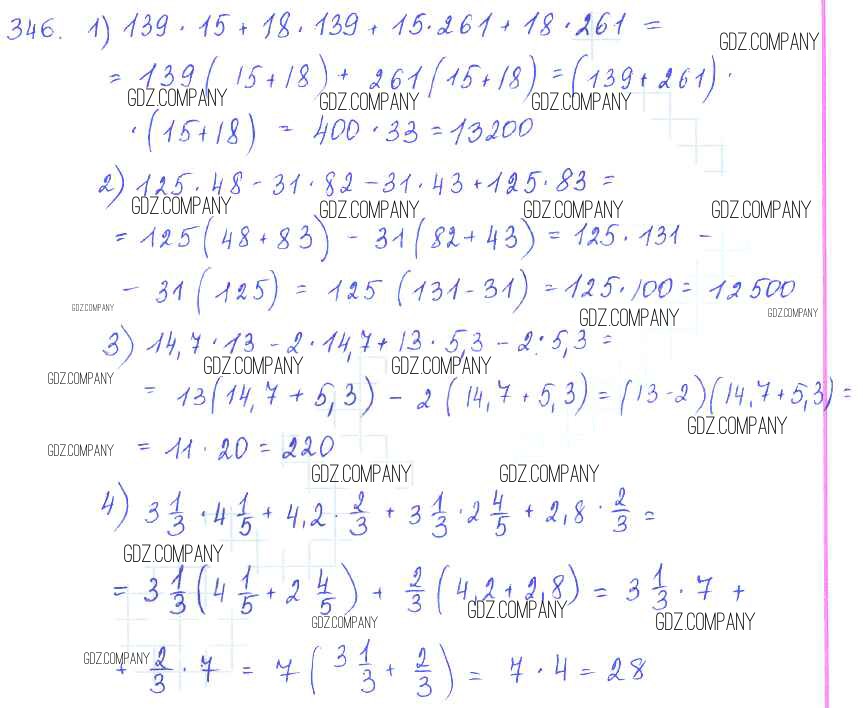 346. 1) 139 · 15 + 18 · 139 + 15 · 261 + 18 · 261 =
GDZ.COMPANY
= 139 ( 15 + 18 ) + 261 ( 15 + 18 ) = ( 139 + 261 ) ·
GDZ.COMPANY GDZ.COMPANY GDZ.COMPANY
· ( 15 + 18 ) = 400 · 33 = 13200
2) 125 · 48 - 31 · 82 - 31 · 43 + 125 · 83 =
GDZ.COMPANY GDZ.COMPANY GDZ.COMPANY GDZ.COMPANY
= 125 ( 48 + 83 ) - 31 ( 82 + 43 ) = 125 · 131 -
- 31 ( 125 ) = 125 ( 131 - 31 ) = 125 · 100 = 12500
GDZ.COMPANY GDZ.COMPANY GDZ.COMPANY
3) 14,7 · 13 - 2 · 14,7 + 13 · 5,3 - 2 · 5,3 =
GDZ.COMPANY GDZ.COMPANY GDZ.COMPANY
= 13 ( 14,7 + 5,3 ) - 2 ( 14,7 + 5,3 ) = ( 13 - 2 ) ( 14,7 + 5,3 ) =
GDZ.COMPANY
GDZ.COMPANY = 11 · 20 = 220
GDZ.COMPANY GDZ.COMPANY
4) 3 1/3 · 4 1/5 + 4,2 · 2/3 + 3 1/3 · 2 4/5 + 2,8 · 2/3 =
GDZ.COMPANY
= 3 1/3 ( 4 1/5 + 2 4/5 ) + 2/3 ( 4,2 + 2,8 ) = 3 1/3 · 7 +
GDZ.COMPANY GDZ.COMPANY GDZ.COMPANY
GDZ.COMPANY + 2/3 · 7 = 7 ( 3 1/3 + 2/3 ) = 7 · 4 = 28